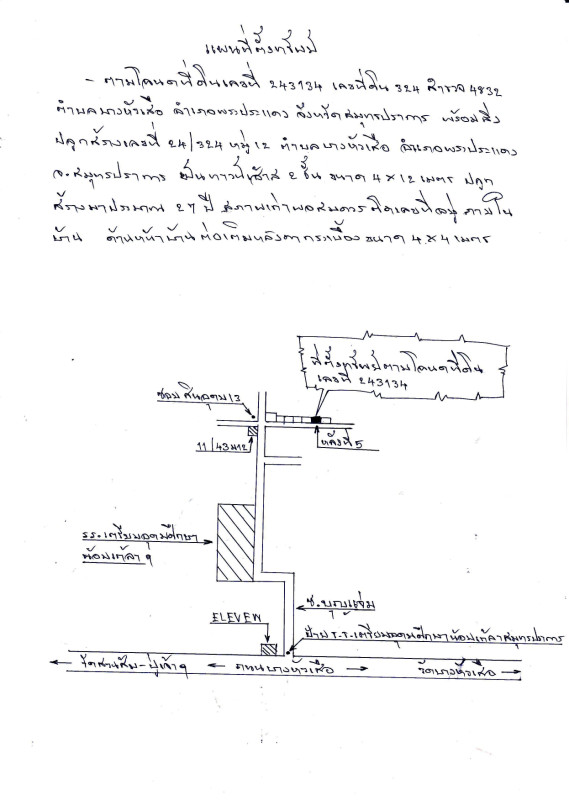 แผนที่ตั้งทรัพย์
- ตามโฉนดที่ดินเลขที่ 243134 เลขที่ดิน 324 สำรวจ 4832
ตำบลบางหัวเสือ อำเภอพระประแดง จังหวัดสมุทรปราการ พร้อมสิ่ง
ปลูกสร้างเลขที่ 24/324 หมู่ 12 ตำบลบางหัวเสือ อำเภอพระประแดง
จ.สมุทรปราการ เป็นทาวน์เฮ้าส์ 2 ชั้น ขนาด 4 x 12 เมตร ปลูก
สร้างมาประมาณ 27 ปี สภาพเก่าพอสมควร ติดเลขที่อยู่ ภายใน
บ้าน ด้านหน้าบ้านต่อเติมหลังคากระเบื้อง ขนาด 4 x 4 เมตร
ที่ตั้งทรัพย์ตามโฉนดที่ดิน
เลขที่ 243134
ซอย สินอุดม 13
11/43 ม 12
หลังที่ 5
รร.เตรียมอุดมศึกษา
น้อมเกล้า ฯ
ซ.บุญแจ่ม
ELEVEN
ป้าย ร.ร.เตรียมอุดมศึกษาน้อมเกล้าสมุทรปราการ
วัดสวนส้ม-ปู่เจ้าฯ
ถนนบางหัวเสือ
วัดบางหัวเสือ